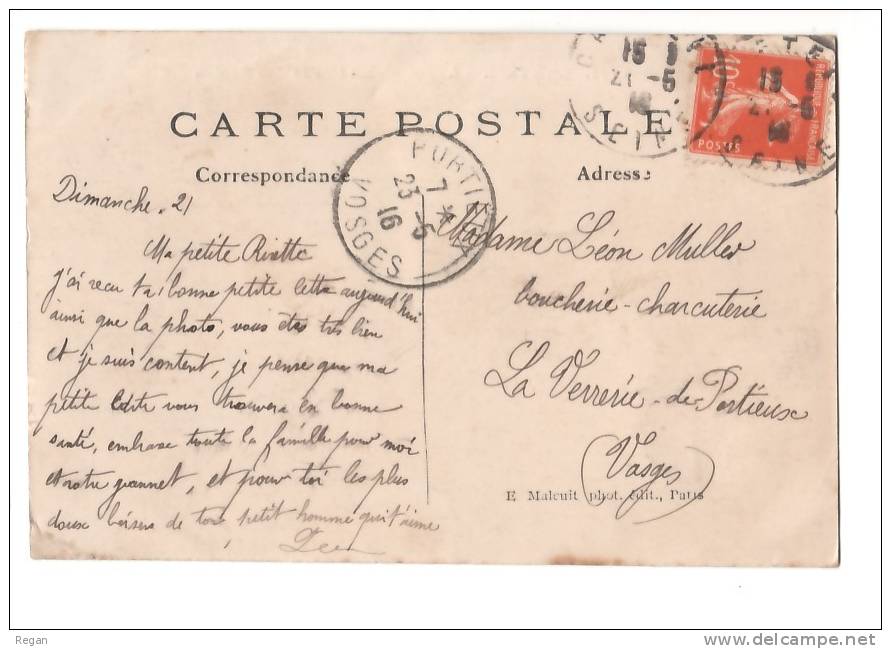 CARTE POSTALE
Correspondance
Adresse
Dimanche. 21
Ma petite Rosette
j'ai recu ta bonne petite lettre aujourd'hui
ainsi que la photo, vous êtes très bien
et je suis content, je pense que ma
petite carte vous trouvera en bonne
santé, embrase toute la famille pour moi
et notre jeannet, et pour toi les plus
doux baisers de ton petit homme qui t'aime
Léon
Madame Léon Muller
boucherie-charcuterie
La Verrerie-de-Portieux
(Vosges)
E Malcuit phot. édit., Paris
PORTIEUX
7 *
23 -5
16
VOSGES
15
21 -5
16
SEINE
10c
REPUBLIQUE FRANÇAISE
POSTES
15
SEINE
Regan
www.delcampe.net